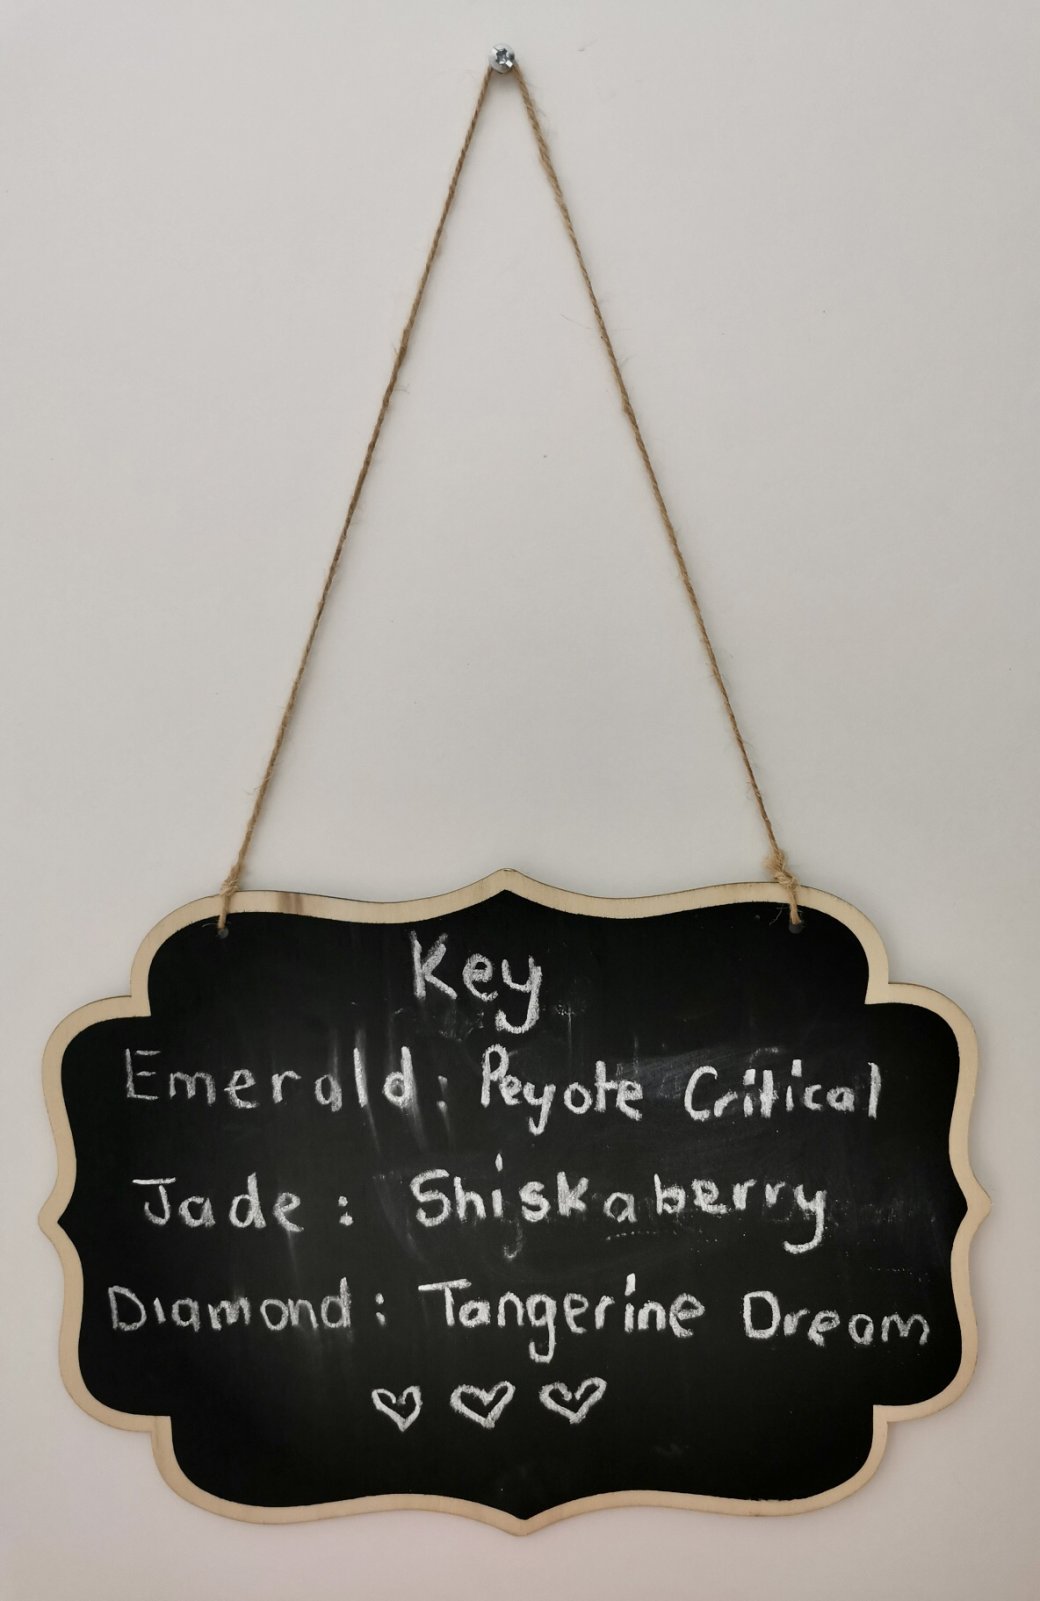 Key
Emerald: Peyote Critical
Jade: Shiskaberry
Diamond: Tangerine Dream